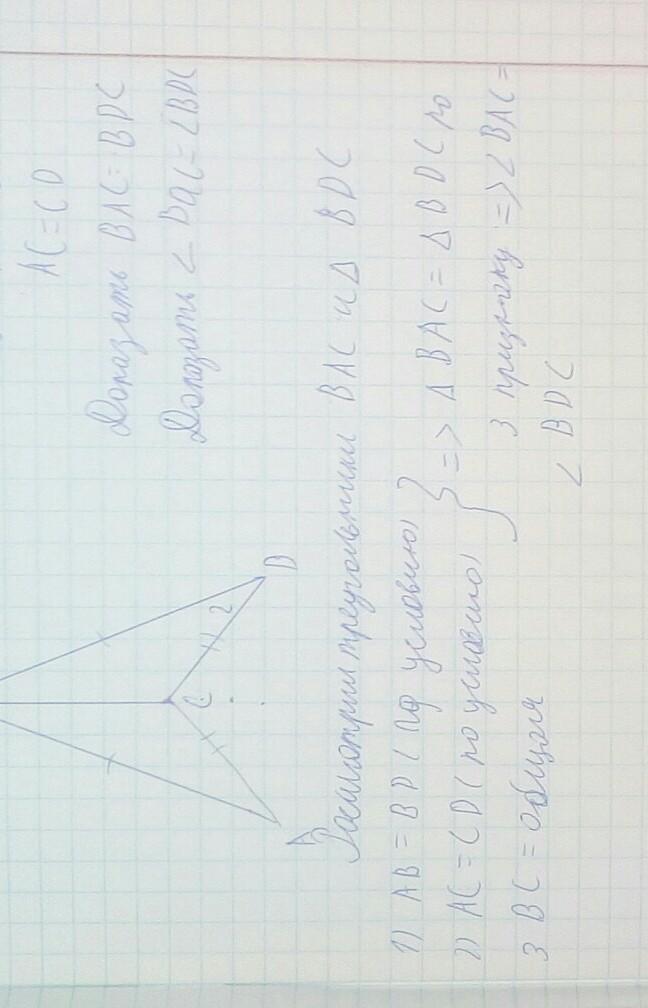 AC = CD
Доказать BAC = BDC
Доказать ∠ BAC = ∠BDC
C
2
D
A
Рассмотрим треугольники BAC и Δ BDC
1) AB = BD (по условию) } => Δ BAC = Δ BDC по
2) AC = CD (по условию) 3 признаку => ∠ BAC =
3 BC = общая ∠ BDC